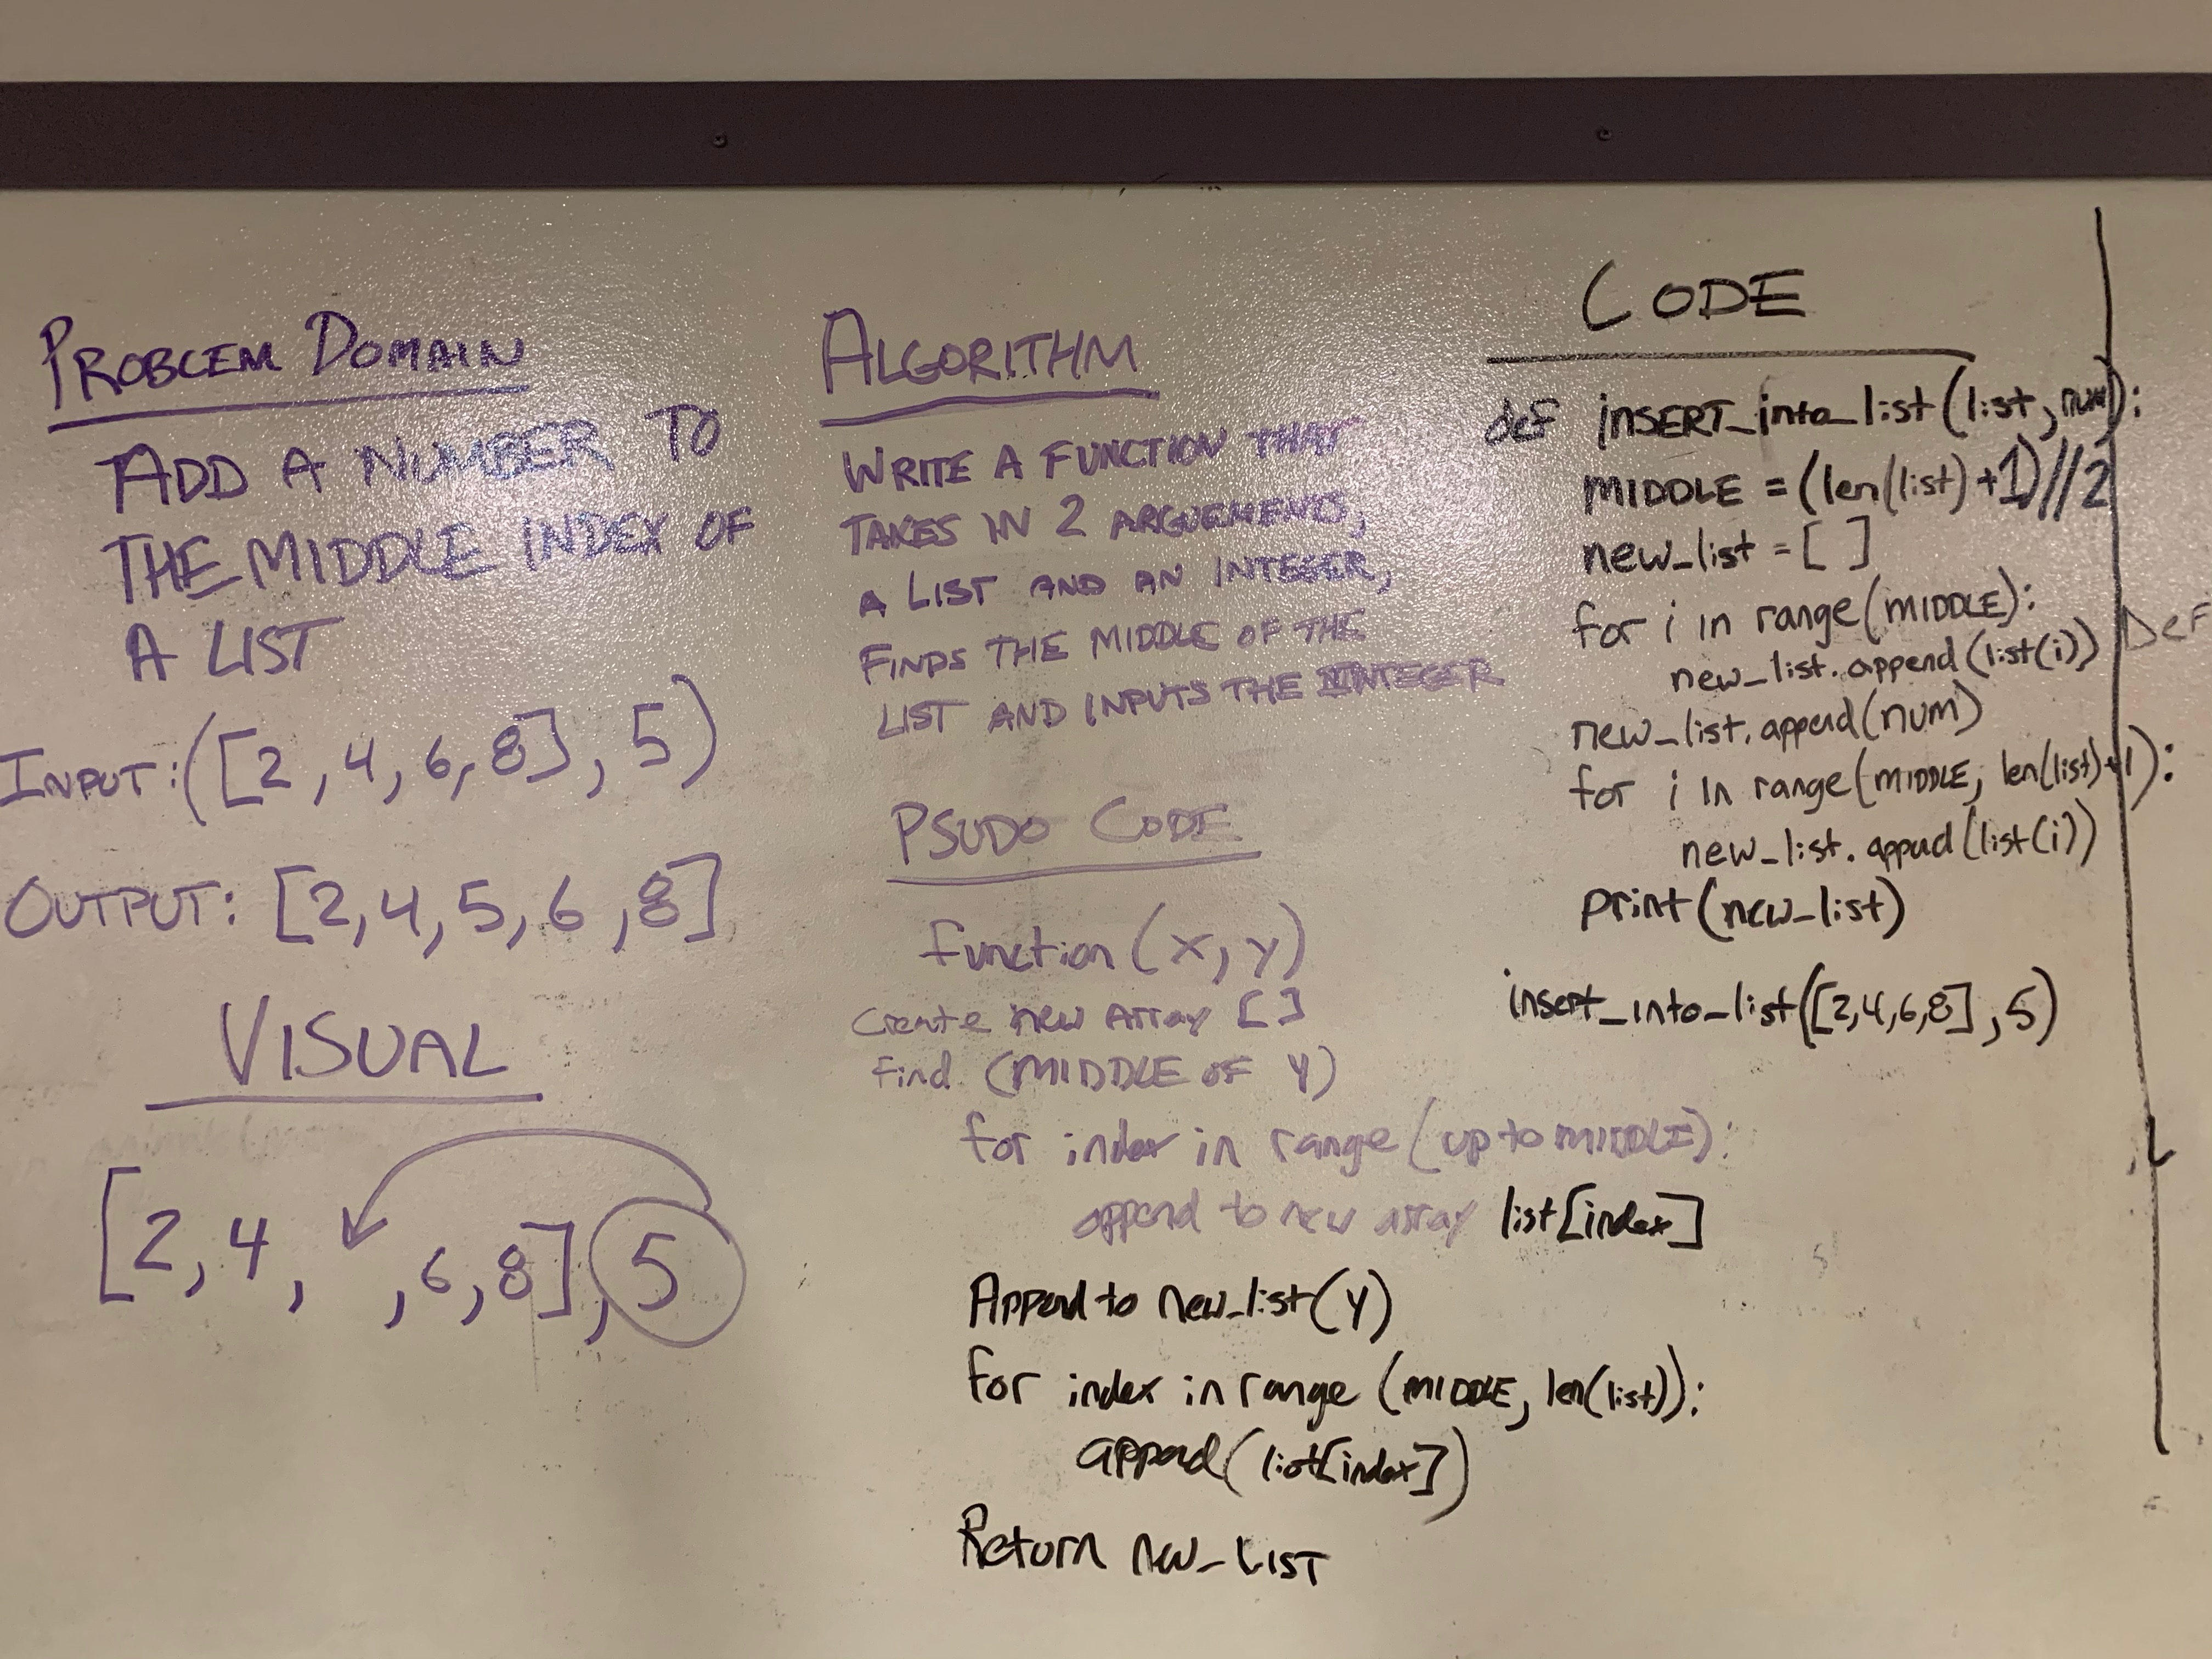 PROBLEM DOMAIN
ADD A NUMBER TO
THE MIDDLE INDEX OF
A LIST
INPUT: ([2, 4, 6, 8], 5)
OUTPUT: [2, 4, 5, 6, 8]
VISUAL
[2, 4, , 6, 8], 5
ALGORITHM
WRITE A FUNCTION THAT
TAKES IN 2 ARGUEMENTS,
A LIST AND AN INTEGER,
FINDS THE MIDDLE OF THE
LIST AND INPUTS THE INTEGER
PSUDO CODE
function (x, y)
create new array []
find (MIDDLE OF Y)
for index in range (up to MIDDLE):
append to new array list[index]
Append to new_list(y)
for index in range (MIDDLE, len(list)):
append(list[index])
Return new_LIST
CODE
def INSERT_into_list(list, num):
MIDDLE = (len(list)+1)//2
new_list = [ ]
for i in range(MIDDLE):
new_list.append(list(i))
new_list.append(num)
for i in range(MIDDLE, len(list)+1):
new_list.append(list(i))
print(new_list)
insert_into_list([2,4,6,8], 5)
DEF